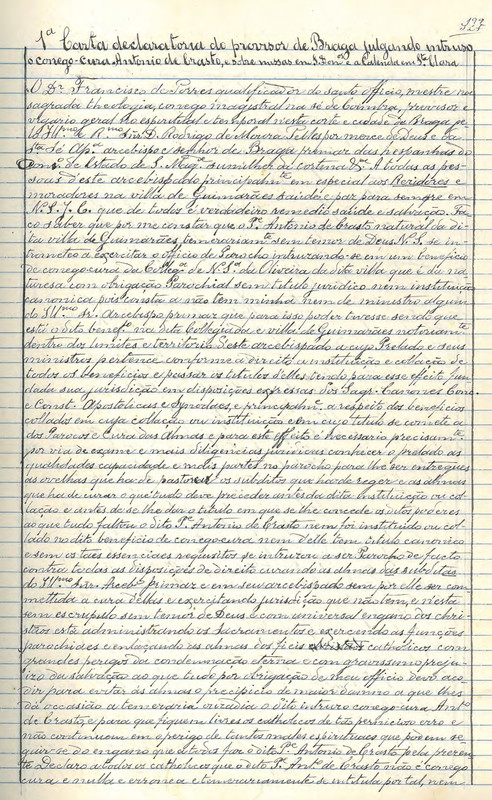 127
1ª Carta declaratoria do provisor de Braga julgando intruso
o conego-cura Antonio de Crasto, e sobre missas em S. e Calenda em Stª Clara
O Dr. Francisco de Torres qualificador do santo officio, mestre na
sagrada theologia, conego magistral na sé de Coimbra, provisor e
vigario geral no espiritual e temporal nesta corte e cidade de Braga pe
lo Illmo e Rmo Snr. D. Rodrigo de Moura Telles por merce de Deus e da
Sta Sé Apca arcebispo e senhor de Braga primaz das hespanhas do
Conso de Estado de S. Magde sumilher da cortina &ce A todas as pes-
soas d'este arcebispado principalmte em especial aos Revdores e
moradores na villa de Guimarães saude e paz para sempre em
N. S. J. C. que de todos é verdadeiro remedio saude e salvação. Fa-
ço saber que por me constar que o Pe Antonio de Crasto natural da di-
ta villa de Guimarães, temerariamte sem temor de Deus N. S. se in-
trometeo a exercitar o officio de Parocho intrusando-se em um beneficio
de conego-cura da Colleg. de N. Sª da Oliveira da dita villa que é da na-
turesa com obrigação parochial sem titulo juridico nem instituição
canonica pois consta a não tem minha nem de ministro algum
do Illmo Sr. Arcebispo primaz que para isso poder tivesse sendo que
está o dito benefº na dita Collegiada e villa de Guimarães notoriamte
dentro dos limites e territorio d'este arcebispado a cujo Prelado e seus
ministros pertence conforme a direito a instituição e collação de
todos os beneficios e passar os titulos d'elles tendo para esse effeito fun-
dada sua jurisdição em disposições expressas dos Sagr. Canones Conc.
e Const. Apostolicas e Synodaes, e principalme a respeito dos beneficios
collados em cuja collação ou instituição e em cujo titulo se comete a
dos Parocos e Cura das Almas e para este effeito é necessario precisamte
por via de exame e mais diligencias juridicas conhecer o prelado as
qualidades capacidade e mais partes no parocho para lhe ser entregues
as ovelhas que ha de pastorear os subditos que ha de reger e as almas
que ha de curar o que tudo deve preceder antes da dita Instituição ou col-
lação e antes de se lhe dar o titulo em que se lhe concede os ditos poderes
ao que tudo faltou o dito Pe Antonio de Crasto nem foi instituido ou col-
lado no dito beneficio de conego-cura nem d'elle tem titulo canonico
e sem os taes essenciaes requisitos se intruzou a ser Parocho de facto
contra todas as disposições de direito curando as almas das subditas
do Illmo Snr. Arcebº Primaz e em seu arcebispado sem por elle ser com-
mettida a cura d'ellas e exercitando jurisdição que não tem, e n'esta
sem escrupulo sem temor de Deus e com universal engano dos chri-
stãos está administrando os Sacramentos e exercendo as funções
parochiaes e enlaçando as almas dos fieis catholicos com
grandes perigos da condemnação eterna e com gravissimo prejui-
zo da salvação ao que tudo por obrigação de meu officio devo acu-
dir para evitar ás almas o precipicio de maior damno a que lhes
dá occasião a temeraria ousadia o dito intruso conego-cura Anto
de Crasto, e para que fiquem livres os catholicos de tão pernicioso erro e
não continuem em o perigo de tantos males espirituaes que podem se-
guir-se do engano que a todos faz o dito Pe Antonio de Crasto pela presen-
te Declaro a todos os catholicos que o dito Pe Anto de Crasto não é conego
cura e nulla e erronea e temerariamente se intitula por tal, nem